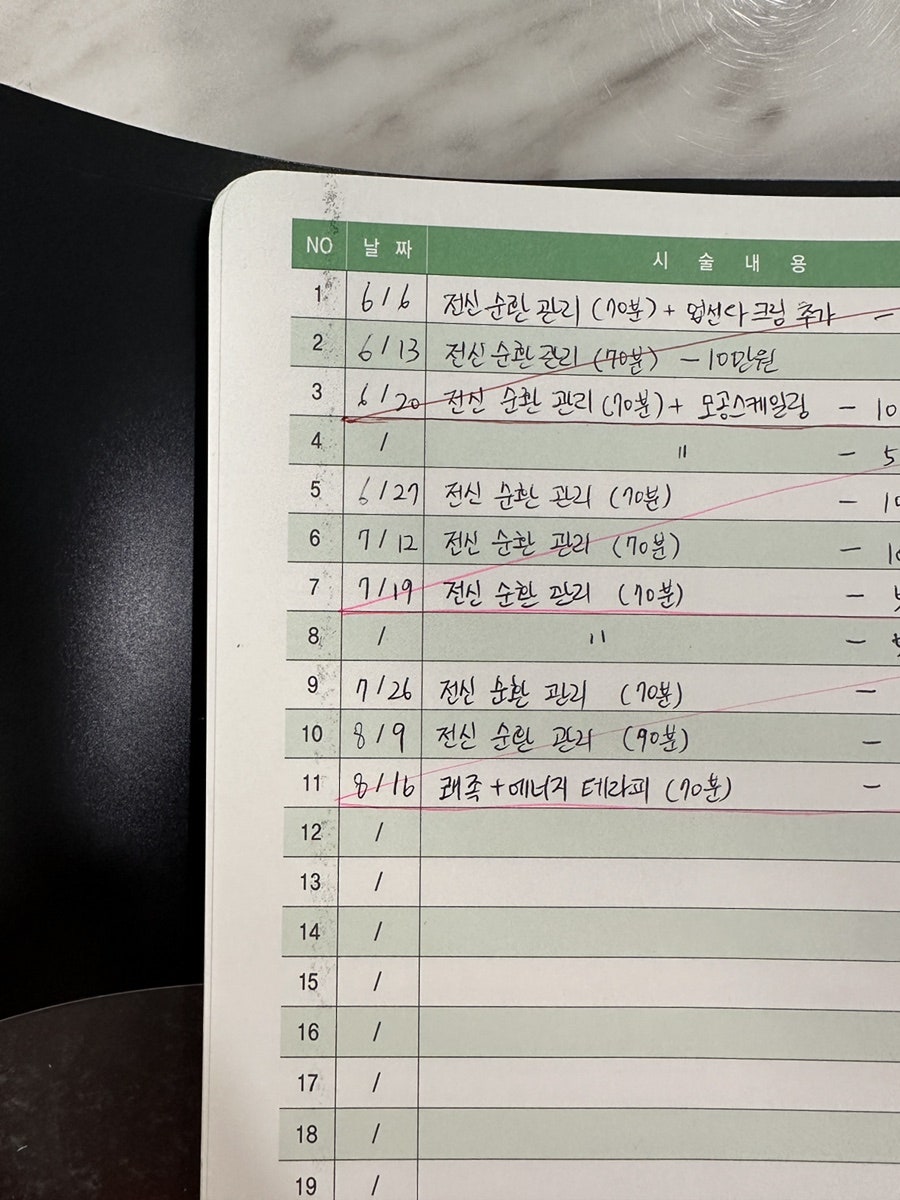 NO 날짜 시술내용
1 6/6 전신 순환 관리 (70분) + 업선다 크림 추가 -
2 6/13 전신 순환 관리 (70분) - 10만원
3 6/20 전신 순환 관리 (70분) + 모공스케일링 - 10
4 / 〃 - 5
5 6/27 전신 순환 관리 (70분) - 10
6 7/12 전신 순환 관리 (70분) - 10
7 7/19 전신 순환 관리 (70분) -
8 / 〃 -
9 7/26 전신 순환 관리 (70분) -
10 8/9 전신 순환 관리 (90분) -
11 8/16 쾌족 + 에너지 테라피 (70분) -
12 /
13 /
14 /
15 /
16 /
17 /
18 /
19 /